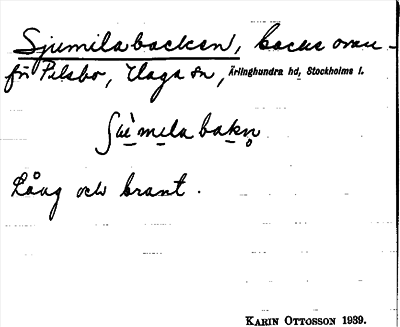 Sjumilabacken, backe ovan-
för Pilsbo, Haga sn, Ärlinghundra hd, Stockholms l.
ʃɯ̀mila bakn̥
Lång och brant.
KARIN OTTOSSON 1939.